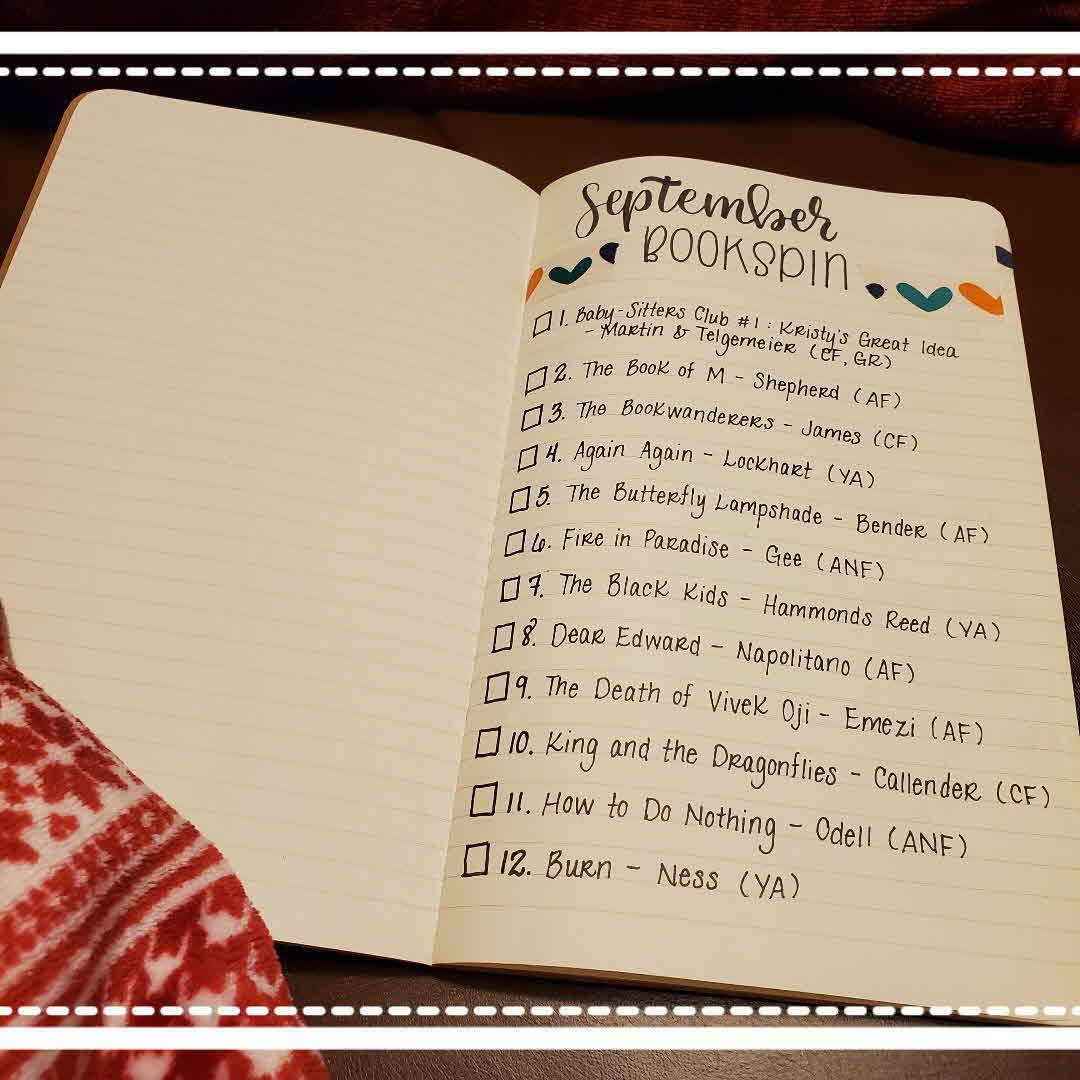 September
BOOKSPIN
1. Baby-Sitters Club #1: Kristy's Great Idea
- Martin & Telgemeier (CF, GR)
2. The Book of M - Shepherd (AF)
3. The Bookwanderers - James (CF)
4. Again Again - Lockhart (YA)
5. The Butterfly Lampshade - Bender (AF)
6. Fire in Paradise - Gee (ANF)
7. The Black Kids - Hammonds Reed (YA)
8. Dear Edward - Napolitano (AF)
9. The Death of Vivek Oji - Emezi (AF)
10. King and the Dragonflies - Callender (CF)
11. How to Do Nothing - Odell (ANF)
12. Burn - Ness (YA)